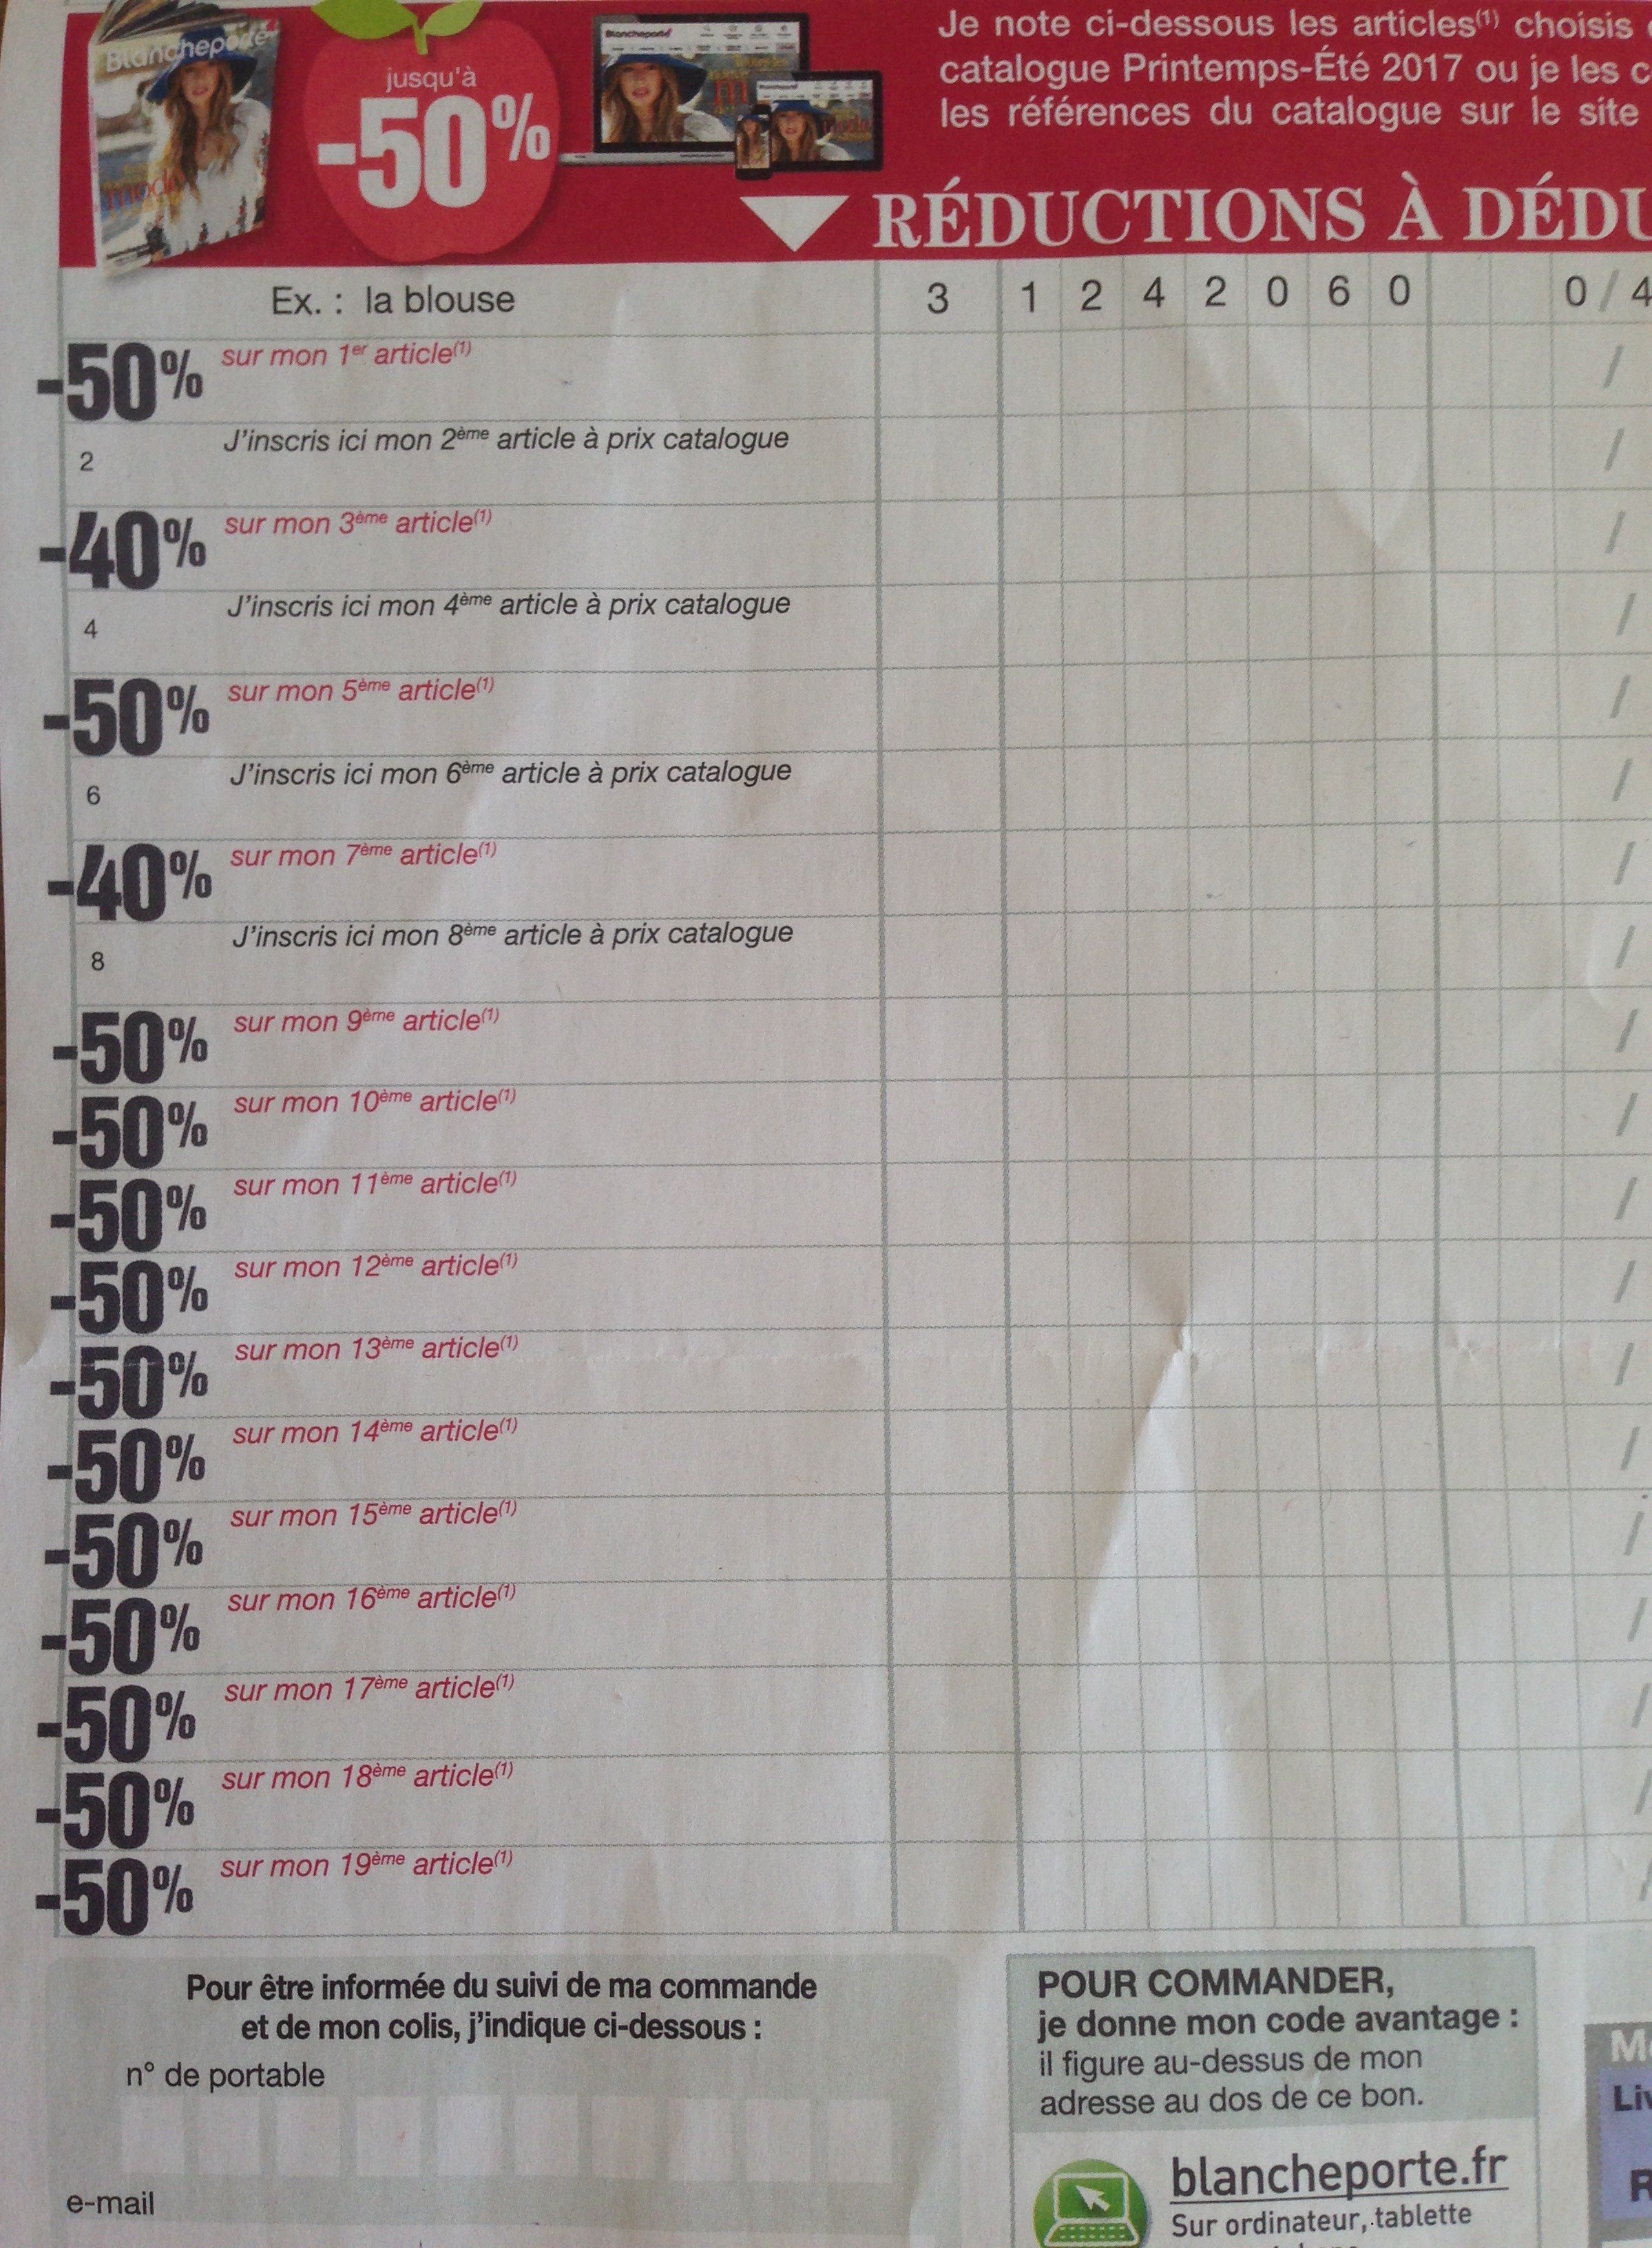 Blancheporte
jusqu'à
-50%
Blancheporte
Je note ci-dessous les articles(1) choisis
catalogue Printemps-Été 2017 ou je les c
les références du catalogue sur le site
RÉDUCTIONS À DÉDU
Ex. : la blouse 3 1 2 4 2 0 6 0 0 / 4
-50% sur mon 1er article(1) /
2 J'inscris ici mon 2ème article à prix catalogue /
-40% sur mon 3ème article(1) /
4 J'inscris ici mon 4ème article à prix catalogue /
-50% sur mon 5ème article(1) /
6 J'inscris ici mon 6ème article à prix catalogue /
-40% sur mon 7ème article(1) /
8 J'inscris ici mon 8ème article à prix catalogue /
-50% sur mon 9ème article(1) /
-50% sur mon 10ème article(1) /
-50% sur mon 11ème article(1) /
-50% sur mon 12ème article(1) /
-50% sur mon 13ème article(1) /
-50% sur mon 14ème article(1) /
-50% sur mon 15ème article(1) /
-50% sur mon 16ème article(1) /
-50% sur mon 17ème article(1) /
-50% sur mon 18ème article(1) /
-50% sur mon 19ème article(1) /
Pour être informée du suivi de ma commande
et de mon colis, j'indique ci-dessous :
n° de portable
e-mail
POUR COMMANDER,
je donne mon code avantage :
il figure au-dessus de mon
adresse au dos de ce bon.
blancheporte.fr
Sur ordinateur, tablette
Liv
R